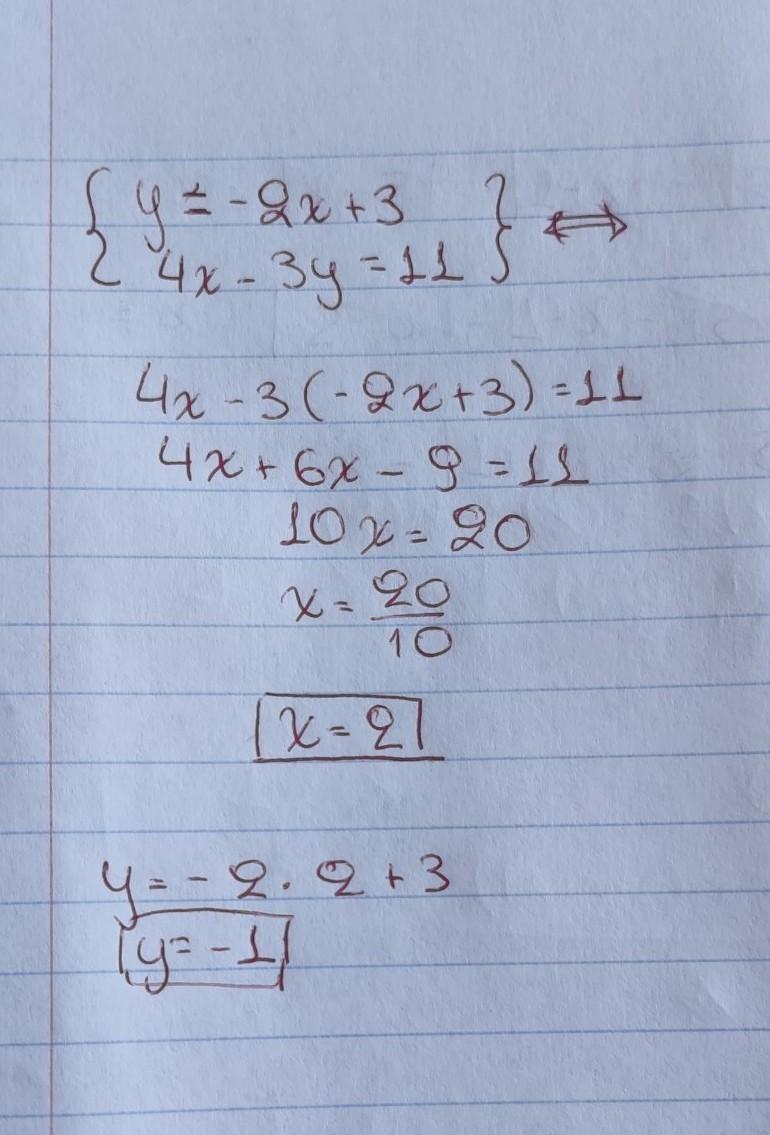 { y = -2x + 3
4x - 3y = 11 } ⟺
4x - 3(-2x+3) = 11
4x + 6x - 9 = 11
10x = 20
x = 20/10
x = 2
y = -2 · 2 + 3
y = -1